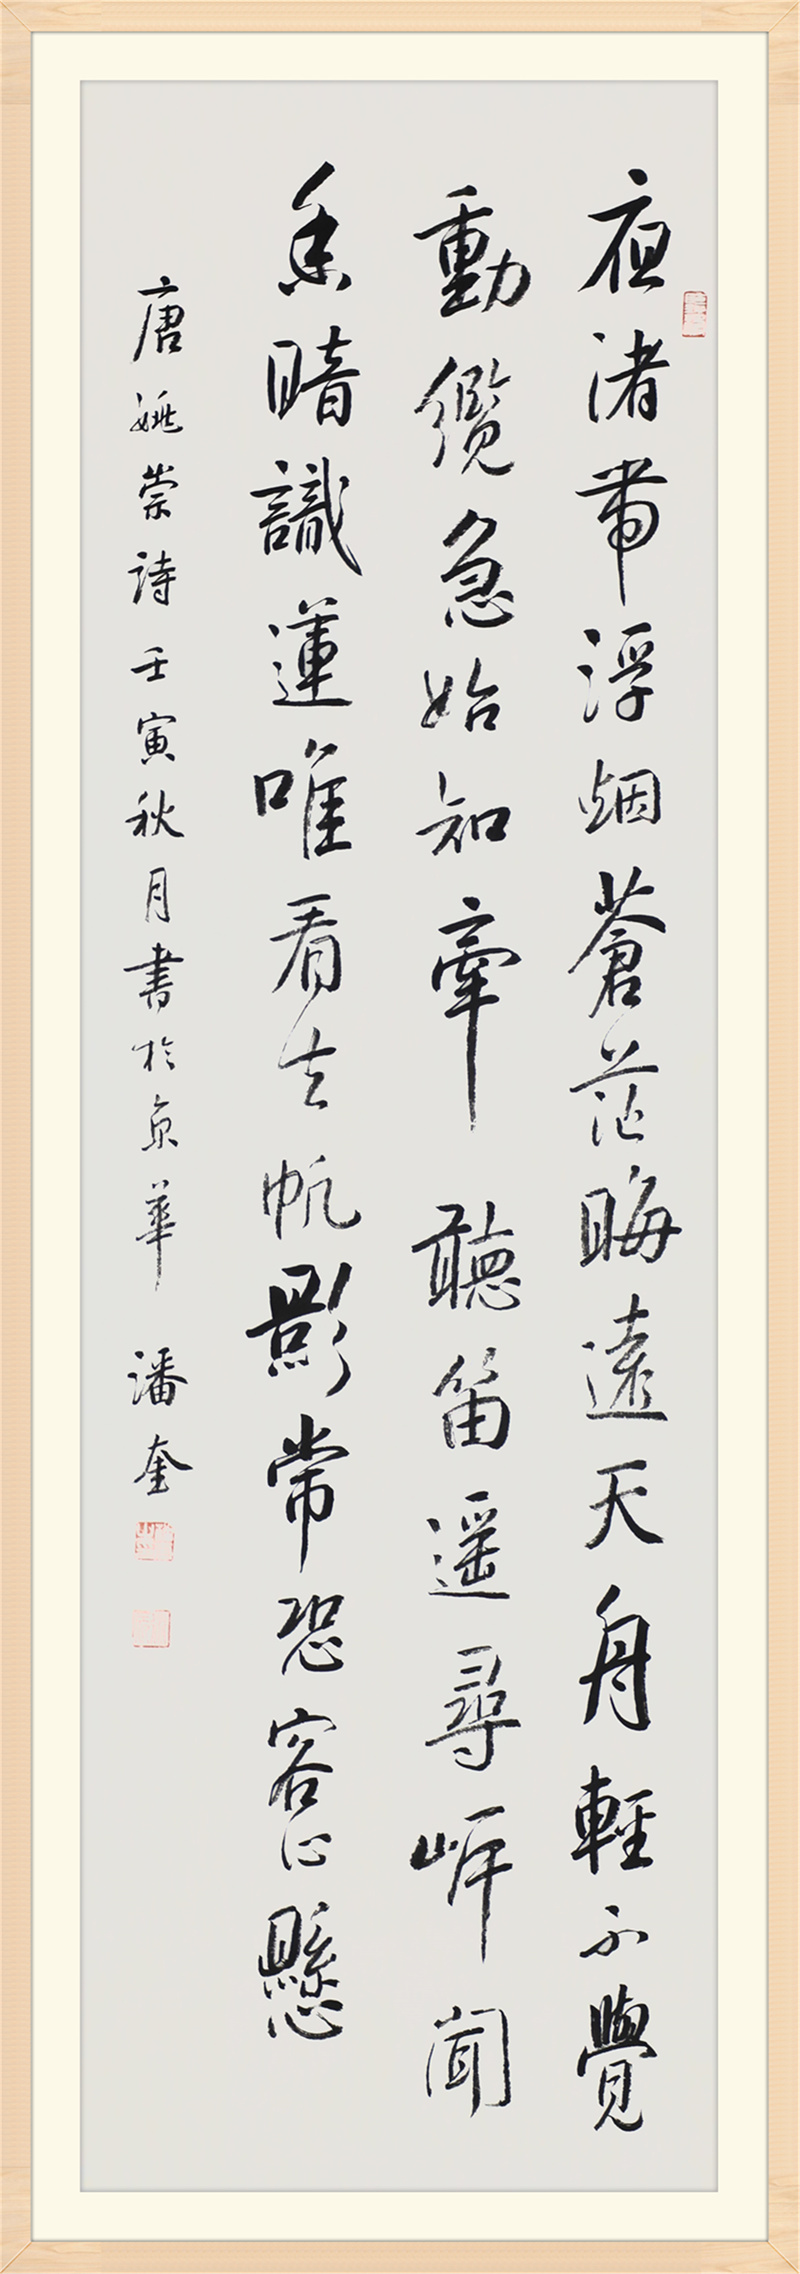 夜渚帶浮烟蒼茫晦遠天舟輕不覺
動纜急始知牽聽笛遥尋岸聞
香暗識蓮唯看去帆影常恐客心懸
唐姚崇詩壬寅秋月書於京華 潘奎